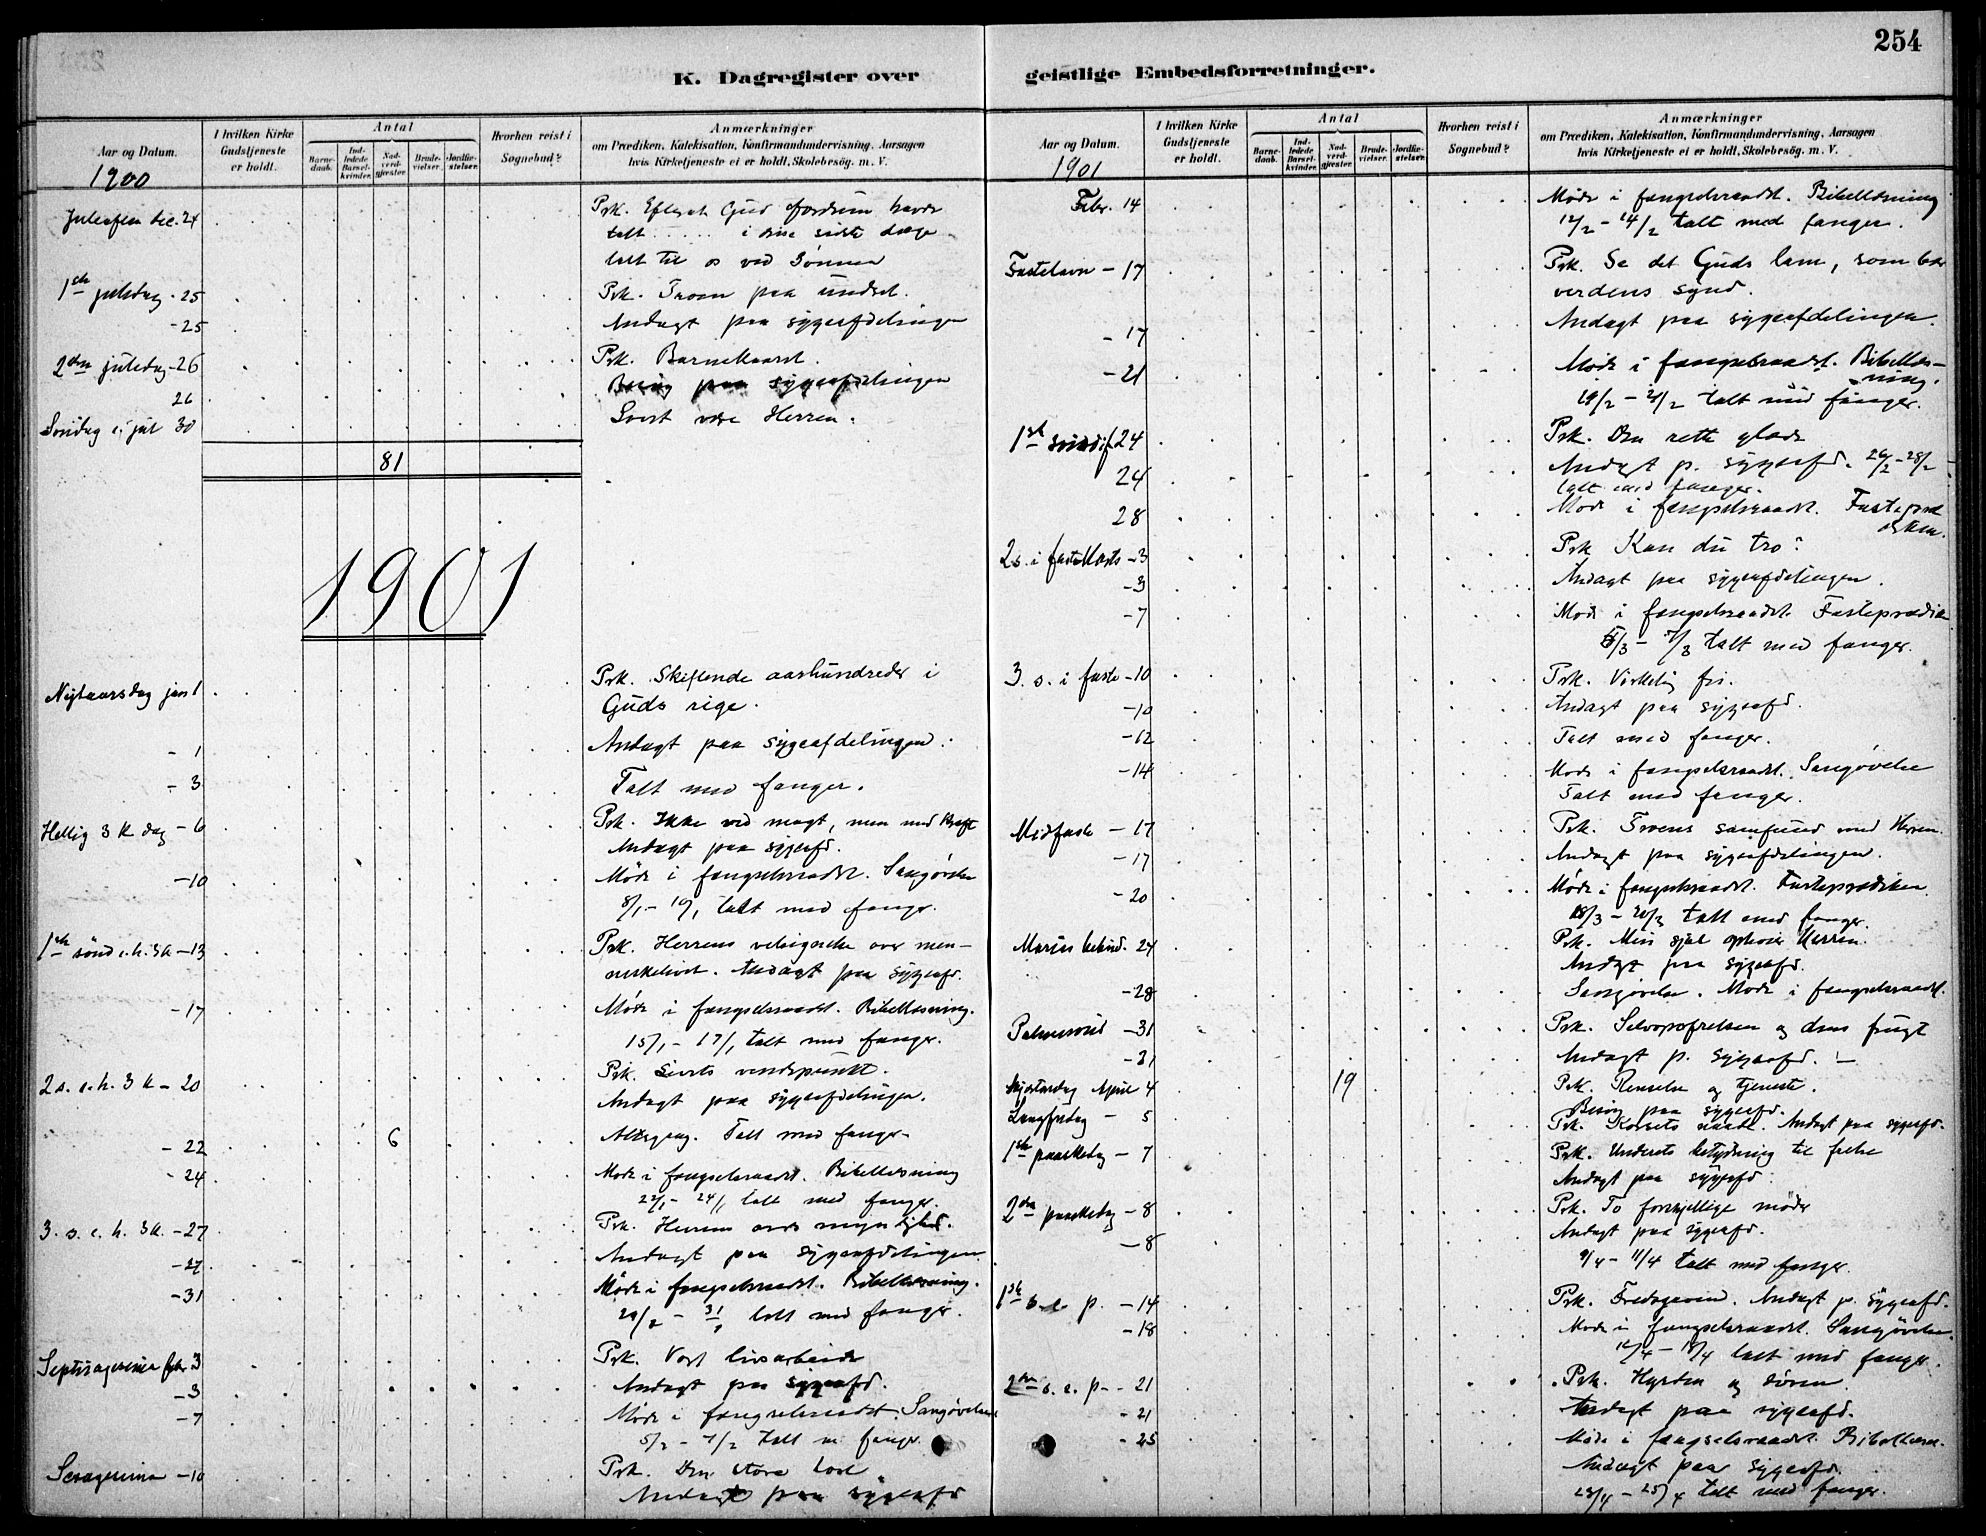 254
K. Dagregister over
geistlige Embedsforretninger.
Aar og Datum.
1900
I hvilken Kirke Gudstjeneste er holdt.
Antal
Barne-daab.
Ind-ledede Barsel-kvinder.
Nad-verd-gjester.
Brude-vielser.
Jordfæ-stelser.
Hvorhen reist i Sognebud?
Anmærkninger
om Prædiken, Katekisation, Konfirmandundervisning, Aarsagen
hvis Kirketjeneste ei er holdt, Skolebesøg. m. V.
Juleaften dec. 24 Prk. Efterat Gud fordum havde
talt ..... i disse sidste dage
talt til os ved Sønnen
1ste juledag - 25 Prk. Troen paa undret.
- 25 Andagt paa sygeafdelingen
2den juledag - 26 Prk.
26 Besøg paa sygeafdelingen
Søndag e. jul 30 Herren.
81
1901
Nytaarsdag jan 1 Prk. Skiftende aarhundreder i
Guds rige.
- 1 Andagt paa sygeafdelingen.
- 3 Talt med fanger.
Hellig 3 K dag - 6 Prk. Ikke ved magt, men med kraft
Andagt paa sygeafd.
- 10 Møde i fængselsraadet. Sangøvelse
8/1 - talt med fanger.
1ste sønd e. h. 3 K - 13 Prk. Herrens velsignelse over men-
neskelivet. Andagt paa sygeafd.
- 17 Møde i fængselsraadet. Bibellæsning.
15/1 - 17/1 talt med fanger.
2 s. e. h. 3 K - 20 Prk. Livets vendepunkt.
Andagt paa sygeafdelingen.
- 22 6 Altergang. Talt med fanger.
- 24 Møde i fængselsraadet. Bibellæsning
22/1 - 24/1 talt med fanger.
3. s. e. h. 3 K. - 27 Prk. Herrens ords myndighed.
- 27 Andagt paa sygeafdelingen
- 31 Møde i fængselsraadet. Bibellæsning.
talt med fanger.
Septuagesima febr 3 Prk. Vort livsarbeide
- 3 Andagt paa sygeafd.
- 7 Møde i fængselsraadet. Sangøvelse
5/2 - 7/2 talt m fanger.
Sexagesima - 10 Prk. Den store
Andagt paa sygeafd
Aar og Datum.
1901
I hvilken Kirke Gudstjeneste er holdt.
Antal
Barne-daab.
Ind-ledede Barsel-kvinder.
Nad-verd-gjester.
Brude-vielser.
Jordfæ-stelser.
Hvorhen reist i Sognebud?
Anmærkninger
om Prædiken, Katekisation, Konfirmandundervisning, Aarsagen
hvis Kirketjeneste ei er holdt, Skolebesøg. m. V.
Febr. 14 Møde i fængselsraadet. Bibellæsning
12/2 - 14/2 talt med fanger.
Fastelavn - 17 Prk. Se det Guds lam, som bær
verdens synd.
- 17 Andagt paa sygeafdelingen.
- 21 Møde i fængselsraadet. Bibellæs-
ning.
19/2 - 21/2 talt med fanger.
1ste 24 Prk. Den rette glæde
24 Andagt p. sygeafd. 26/2 - 28/2
talt med fanger.
28 Møde i fængselsraadet. Fastepræ
diken.
2 s. i faste Marts - 3 Prk Kan du tro?
- 3 Andagt paa sygeafdelingen.
- 7 Møde i fængselsraadet. Fasteprædik
5/3 - 7/3 talt med fanger.
3. s. i faste - 10 Prk. Virkelig fri.
- 10 Andagt paa sygeafd.
- 12 Talt med fanger.
- 14 Møde i fængselsraadet. Sangøvelse
Talt med fanger.
Midfaste - 17 Prk. Troens samfund med Herren.
- 17 Andagt paa sygeafdelingen.
- 20 Møde i fængselsraadet. Fasteprædiken
18/3 - 20/3 talt med fanger.
Mariæ bebud. 24 Prk. Min sjæl ophøier Herren.
Andagt paa sygeafd.
- 28 Sangøvelse. Møde i fængselsraadet.
Palmesønd - 31 Prk. Selvopofrelsen og dens frugt
- 31 Andagt p. sygeafd.
Skjærtorsdag April 4 19 Prk. Renselse og tjeneste.
Besøg paa sygeafd.
Langfredag - 5 Prk. Korsets Andagt paa sygeafd.
1ste paaskedag - 7 Prk. Underets betydning til frelse
Andagt paa sygeafd.
2den paaskedag - 8 Prk. To forskjellige møder
- 8 Andagt paa sygeafd.
9/4 - 11/4 talt med fanger.
1ste s. e. p. - 14 Prk. Andagt p. sygeafd.
- 18 Møde i fængselsraadet. Sangøvelse.
16/4 - 18/4 talt med fanger.
2den s. e. p. - 21 Prk. Hyrden og døren.
- 21 Andagt paa sygeafd.
- 25 Møde i fængselsraadet. Bibellæsn.
Andagt paa sygeafd.
23/4 - 25/4 talt med fanger.